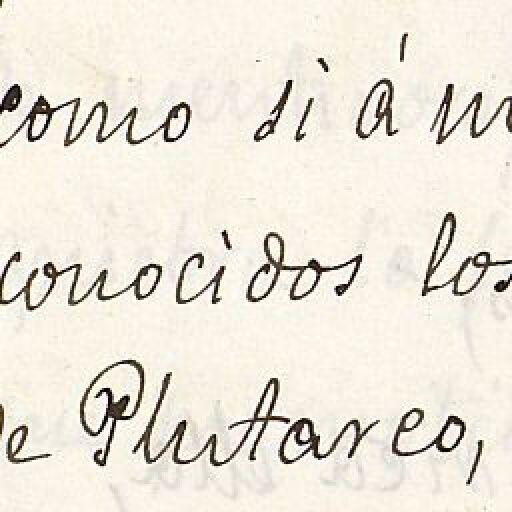 como si á m
conocidos los
de Plutarco,